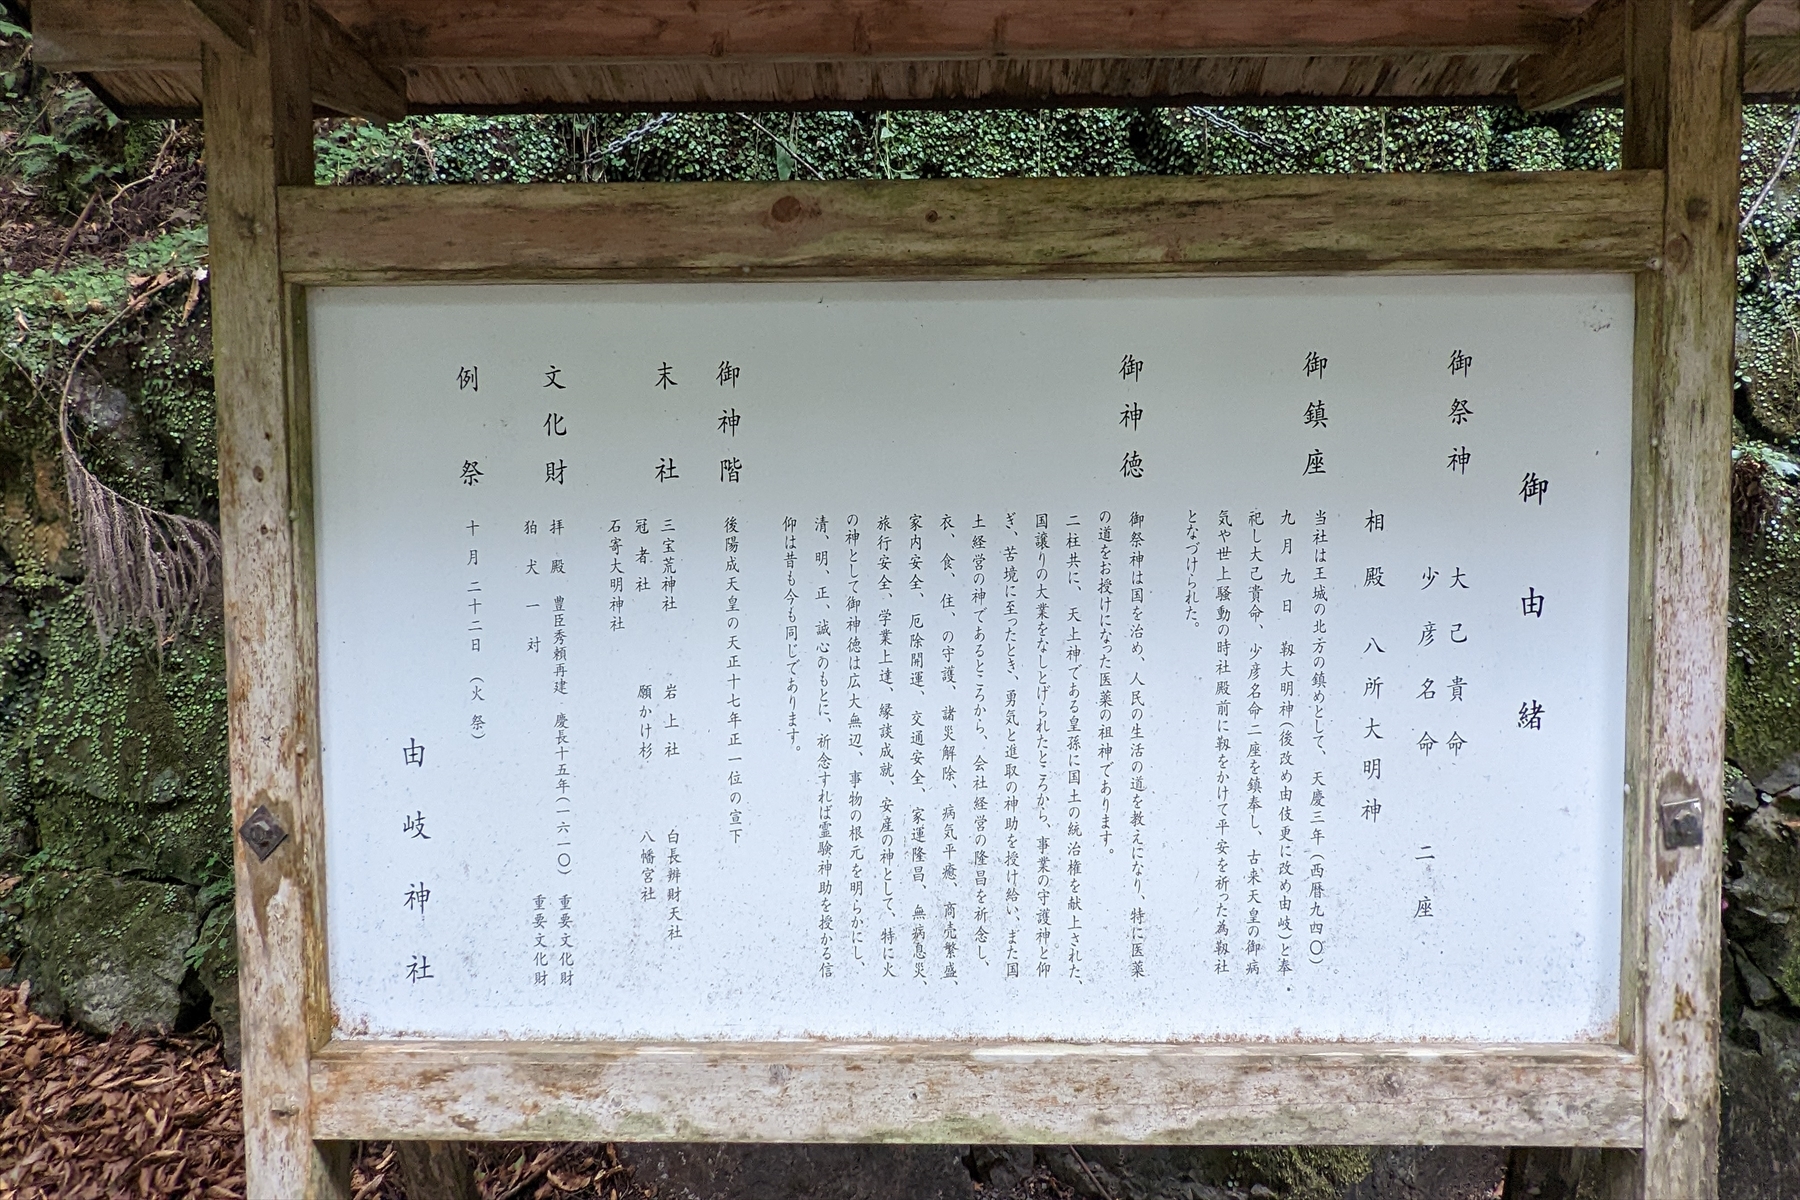 御由緒
御祭神　大己貴命
少彦名命　二座
相殿　八所大明神
御鎮座　当社は王城の北方の鎮めとして、天慶三年（西暦九四〇）
九月九日　靱大明神（後改め由伎更に改め由岐）と奉
祀し大己貴命、少彦名命二座を鎮奉し、古来天皇の御病
気や世上騒動の時社殿前に靱をかけて平安を祈った為靱社
となづけられた。
御神徳　御祭神は国を治め、人民の生活の道を教えになり、特に医薬
の道をお授けになった医薬の祖神であります。
二柱共に、天上神である皇孫に国土の統治権を献上された、
国譲りの大業をなしとげられたところから、事業の守護神と仰
ぎ、苦境に至ったとき、勇気と進取の神助を授け給い、また国
土経営の神であるところから、会社経営の隆昌を祈念し、
衣、食、住、の守護、諸災解除、病気平癒、商売繁盛、
家内安全、厄除開運、交通安全、家運隆昌、無病息災、
旅行安全、学業上達、縁談成就、安産の神として、特に火
の神として御神徳は広大無辺、事物の根元を明らかにし、
清、明、正、誠心のもとに、祈念すれば霊験神助を授かる信
仰は昔も今も同じであります。
御神階　後陽成天皇の天正十七年正一位の宣下
末社　三宝荒神社　岩上社　白長辨財天社
冠者社　願かけ杉　八幡宮社
石寄大明神社
文化財　拝殿　豊臣秀頼再建　慶長十五年（一六一〇）　重要文化財
狛犬一対　重要文化財
例祭　十月二十二日（火祭）
由岐神社